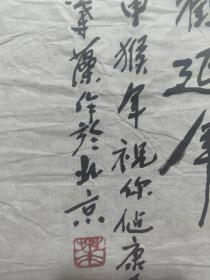 延年
申猴年祝你健康
作於北京